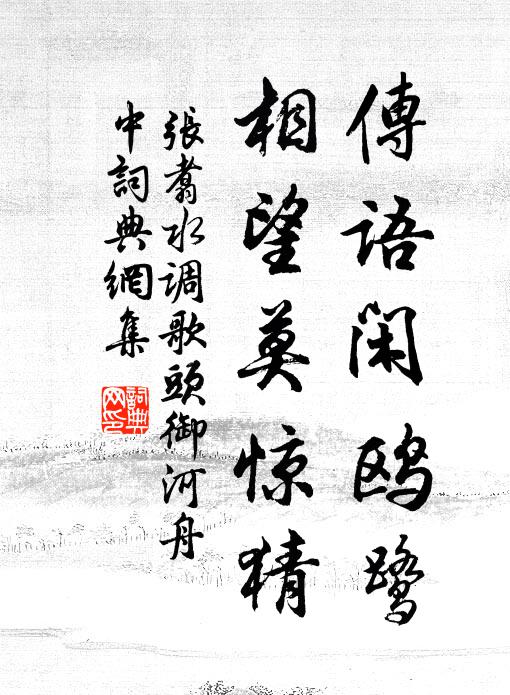 傳語閑鷗鷺
相望莫惊猜
張翥水调歌頭御河舟
中詞典網集
詞典
网印